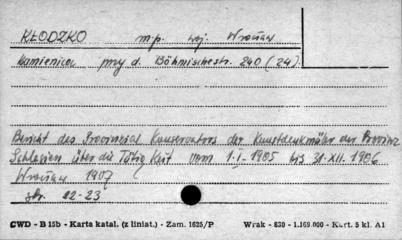 KŁODZKO m.p. woj. Wrocław
Kamienica przy d. Böhmischestr. 240 (24).
Bericht des Provinzial Konservators der Kunstdenkmäler der Provinz
Schlesien über die Tätigkeit vom 1.I-1905 bis 31.XII.1906
Wrocław 1907
str. 22-23
CWD - B 15b - Karta katal. (z liniat.) - Zam. 1625/P Wrak - 830 - 1.169.000 - Kart. 5 kl. A1